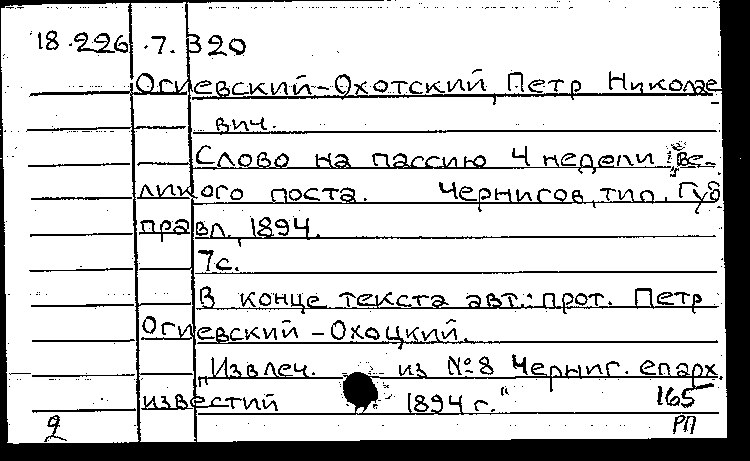 18.226.7.320
Огиевский-Охотский, Петр Николае-
вич.
Слово на пассию 4 недели Ве-
ликого поста. Чернигов, тип. Губ
правл., 1894.
7с.
В конце текста авт.: прот. Петр
Огиевский-Охоцкий.
"Извлеч. из №8 Черниг. епарх.
известий 1894 г."
165
РП